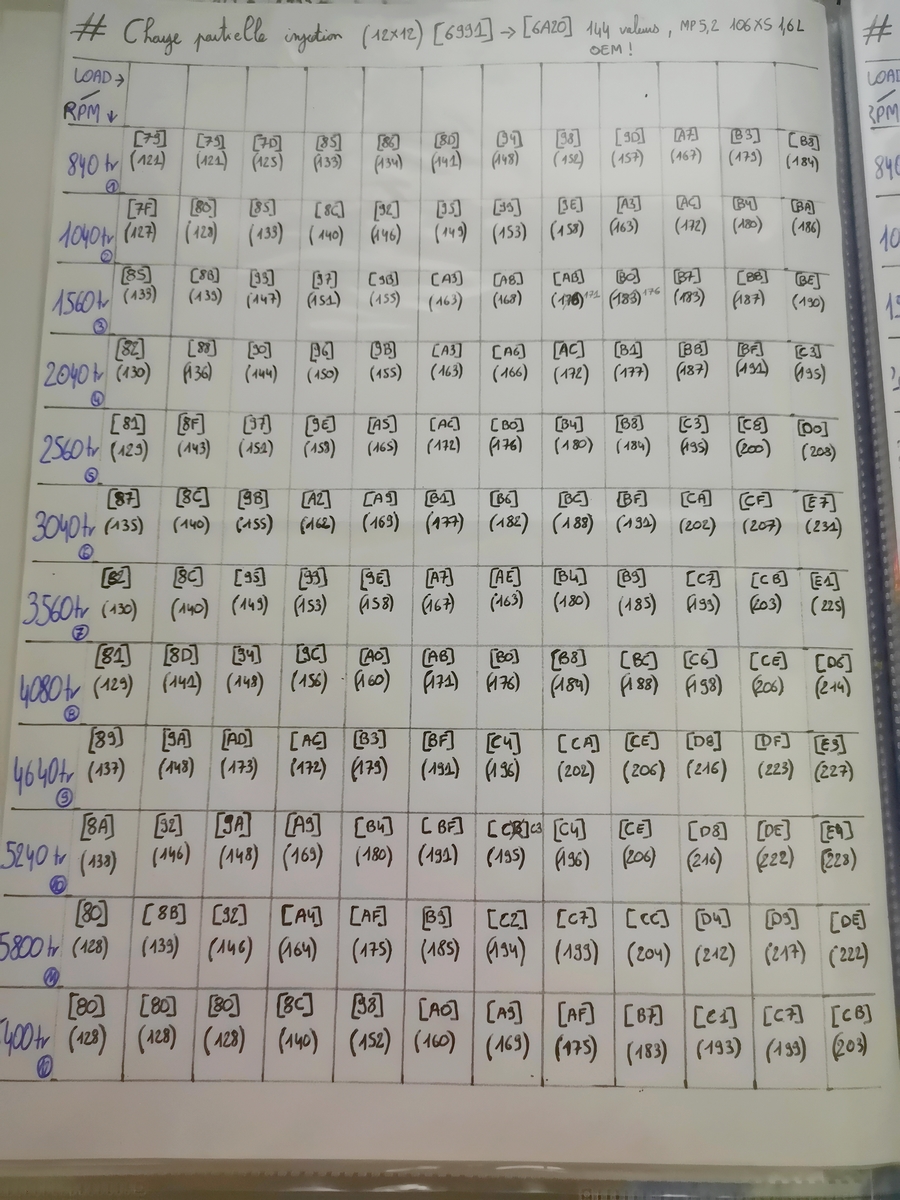 # Charge partielle injection (12x12) [6991] → [6A20] 144 valeurs, MP5,2 106XS 1,6L
OEM !
LOAD →
RPM ↓
[79] [79] [7D] [85] [86] [8D] [94] [98] [9D] [A7] [B3] [B8]
840 tr (121) (121) (125) (133) (134) (141) (148) (152) (157) (167) (179) (184)
1
[7F] [80] [85] [8C] [92] [95] [99] [9E] [A3] [AC] [B4] [BA]
1040 tr (127) (128) (133) (140) (146) (149) (153) (158) (163) (172) (180) (186)
2
[85] [8B] [93] [97] [9B] [A3] [A8] [AB] [B0] [B7] [BB] [BE]
1560 tr (133) (139) (147) (151) (155) (163) (168) 171 (183) 176 (183) (187) (190)
3
[82] [88] [90] [96] [9B] [A3] [A6] [AC] [B1] [BB] [BF] [C3]
2040 tr (130) (136) (144) (150) (155) (163) (166) (172) (177) (187) (191) (195)
4
[81] [8F] [97] [9E] [A5] [AC] [B0] [B4] [B8] [C3] [C8] [D0]
2560 tr (129) (143) (151) (158) (165) (172) (176) (180) (184) (195) (200) (208)
5
[87] [8C] [9B] [A2] [A9] [B1] [B6] [BC] [BF] [CA] [CF] [E7]
3040 tr (135) (140) (155) (162) (169) (177) (182) (188) (191) (202) (207) (231)
6
[82] [8C] [95] [99] [9E] [A7] [AE] [B4] [B9] [C7] [CB] [E1]
3560 tr (130) (140) (149) (153) (158) (167) (163) (180) (185) (199) (203) (225)
7
[81] [8D] [94] [9C] [A0] [AB] [B0] [B8] [BC] [C6] [CE] [D6]
4080 tr (129) (141) (148) (156) (160) (171) (176) (184) (188) (198) (206) (214)
8
[89] [9A] [AD] [AC] [B3] [BF] [C4] [CA] [CE] [D8] [DF] [E3]
4640 tr (137) (148) (173) (172) (179) (191) (196) (202) (206) (216) (223) (227)
9
[8A] [92] [9A] [A9] [B4] [BF] C3 [C4] [CE] [D8] [DE] [E4]
5240 tr (138) (146) (148) (169) (180) (191) (195) (196) (206) (216) (222) (228)
10
[80] [8B] [92] [A4] [AF] [B9] [C2] [C7] [CC] [D4] [D9] [DE]
5800 tr (128) (139) (146) (164) (175) (185) (194) (199) (204) (212) (217) (222)
11
[80] [80] [80] [8C] [98] [A0] [A9] [AF] [B7] [C1] [C7] [CB]
400 tr (128) (128) (128) (140) (152) (160) (169) (175) (183) (193) (199) (203)
12
#
LOAD
RPM